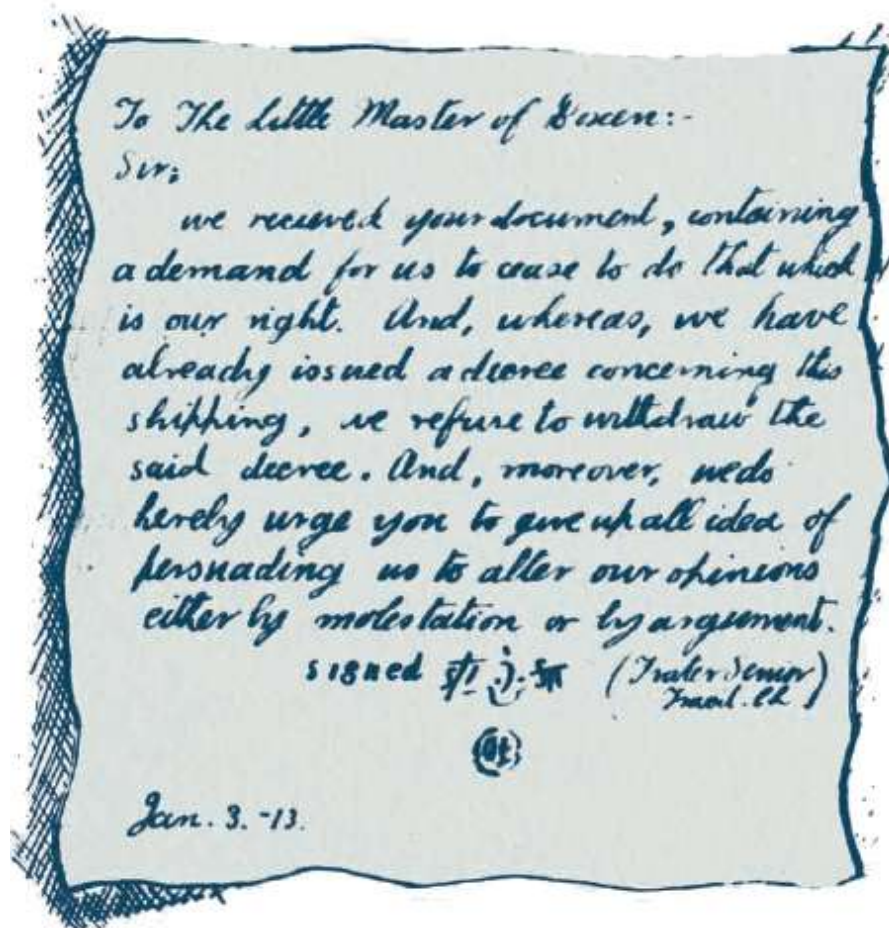 To The Little Master of Boxen:-
Sir;
we recieved your document, containing
a demand for us to cease to do that which
is our right. And, whereas, we have
already issued a decree concerning this
shipping, we refuse to withdraw the
said decree. And, moreover, we do
hereby urge you to give up all idea of
persuading us to alter our opinions
either by molestation or by argument.
signed (Frater Senior)
Jan. 3. -13.